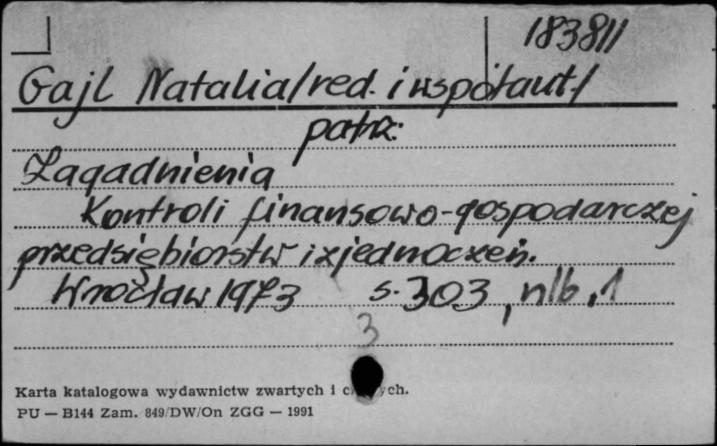 183811
Gajl Natalia/red. i współaut./
patrz:
Zagadnienia
Kontroli finansowo-gospodarczej
przedsiębiorstw i zjednoczeń.
Wrocław 1973 s. 303, nlb. 1
3
Karta katalogowa wydawnictw zwartych i ch.
PU — B144 Zam. 849/DW/On ZGG — 1991